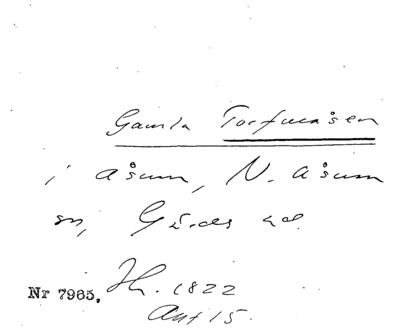 Gamla Torfmåsen
i Åsum, N. Åsum
sn, Gärds hd.
Nr 7965. Th. 1822
Ant 15.